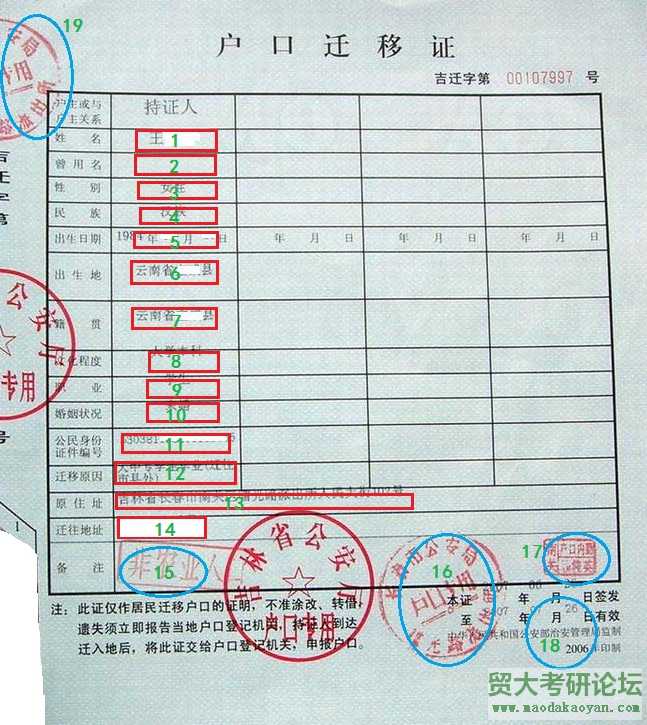 19
户口迁移证
吉迁字第 00107997 号
户主或与户主关系 持证人
姓名 1
曾用名 2
性别 女性 3
民族 汉族 4
出生日期 1984年 5 月 日 年 月 日 年 月 日 年 月 日
出生地 云南省 6 县
籍贯 云南省 7 县
文化程度 大学本科 8
职业 学生 9
婚姻状况 未婚 10
公民身份证件编号 530381 11
迁移原因 12 市县处)
原住址 吉林省长春市南关 13
迁往地址 14
备注 非农业人 15
吉林省公安厅
户口专用
16
17
18
本证 07 06 26 日签发
至 07 月 26 日有效
注：此证仅作居民迁移户口的证明，不准涂改、转借，
遗失须立即报告当地户口登记机关，持证人到达
迁入地后，将此证交给户口登记机关，申报户口。
中华人民共和国公安部治安管理局监制
2006年印制
吉
迁
字
第
号
公安厅
专用
1
贸大考研论坛
www.maodakaoyan.com